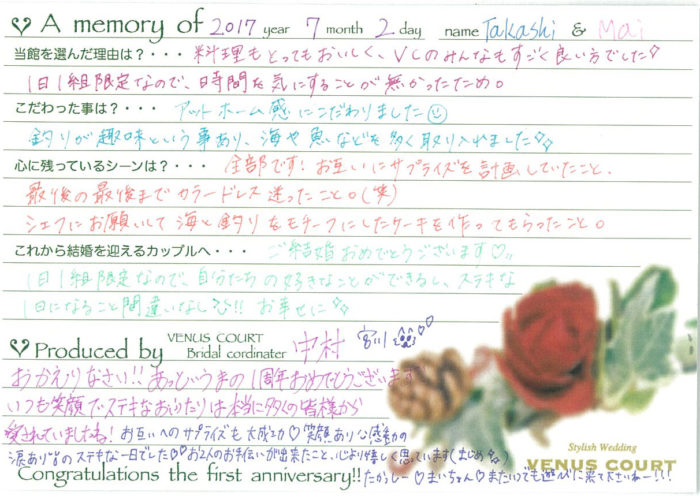 A memory of 2017 year 7 month 2 day name Takashi & Mai
当館を選んだ理由は?・・・ 料理もとってもおいしく、VCのみんなもすごく良い方でした
1日1組限定なので、時間を気にすることが無かったため。
こだわった事は?・・・ アットホーム感にこだわりました
釣りが趣味という事あり、海や魚などを多く取り入れました
心に残っているシーンは?・・・ 全部です! お互いにサプライズを計画していたこと、
最後の最後までカラードレス迷ったこと。(笑)
シェフにお願いして海と釣りをモチーフにしたケーキを作ってもらったこと。
これから結婚を迎えるカップルへ・・・ ご結婚おめでとうございます♡
1日1組限定なので、自分たちの好きなことができるし、ステキな
1日になること間違いなし!! お幸せに
Produced by VENUS COURT Bridal cordinater 中村 宮川
おかえりなさい!! あっというまの1周年おめでとうございます
いつも笑顔でステキなおふたりは本当に多くの皆様から
愛されていましたね! お互いへのサプライズも大成功♡ 笑顔あり感動の
涙ありのステキな一日でした♡ お2人のお手伝いが出来たこと、心より嬉しく思っています(まじめ)
Stylish Wedding
VENUS COURT
Congratulations the first anniversary!! たかしー♡まいちゃん♡またいつでも遊びに来て下さいねー!!!